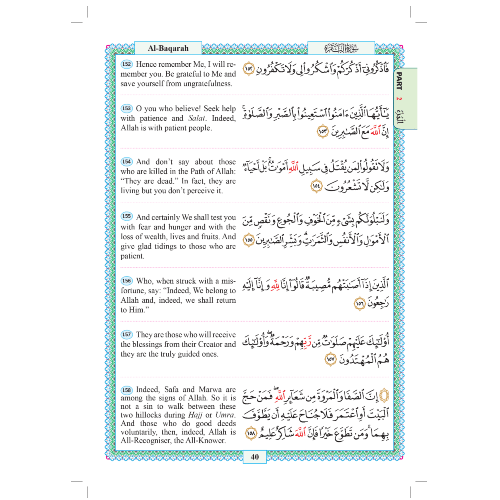 Al-Baqarah
سُورَةُ الْبَقَرَة
152 Hence remember Me, I will re-
member you. Be grateful to Me and
save yourself from ungratefulness.
فَاذْكُرُونِي أَذْكُرْكُمْ وَاشْكُرُوا لِي وَلَا تَكْفُرُونِ ١٥٢
153 O you who believe! Seek help
with patience and Salat. Indeed,
Allah is with patient people.
يَا أَيُّهَا الَّذِينَ آمَنُوا اسْتَعِينُوا بِالصَّبْرِ وَالصَّلَاةِ
إِنَّ اللَّهَ مَعَ الصَّابِرِينَ ١٥٣
154 And don't say about those
who are killed in the Path of Allah:
"They are dead." In fact, they are
living but you don't perceive it.
وَلَا تَقُولُوا لِمَن يُقْتَلُ فِي سَبِيلِ اللَّهِ أَمْوَاتٌ بَلْ أَحْيَاءٌ
وَلَٰكِن لَّا تَشْعُرُونَ ١٥٤
155 And certainly We shall test you
with fear and hunger and with the
loss of wealth, lives and fruits. And
give glad tidings to those who are
patient.
وَلَنَبْلُوَنَّكُم بِشَيْءٍ مِّنَ الْخَوْفِ وَالْجُوعِ وَنَقْصٍ مِّنَ
الْأَمْوَالِ وَالْأَنفُسِ وَالثَّمَرَاتِ وَبَشِّرِ الصَّابِرِينَ ١٥٥
156 Who, when struck with a mis-
fortune, say: "Indeed, We belong to
Allah and, indeed, we shall return
to Him."
الَّذِينَ إِذَا أَصَابَتْهُم مُّصِيبَةٌ قَالُوا إِنَّا لِلَّهِ وَإِنَّا إِلَيْهِ
رَاجِعُونَ ١٥٦
157 They are those who will receive
the blessings from their Creator and
they are the truly guided ones.
أُولَٰئِكَ عَلَيْهِمْ صَلَوَاتٌ مِّن رَّبِّهِمْ وَرَحْمَةٌ وَأُولَٰئِكَ
هُمُ الْمُهْتَدُونَ ١٥٧
158 Indeed, Safa and Marwa are
among the signs of Allah. So it is
not a sin to walk between these
two hillocks during Hajj or Umra.
And those who do good deeds
voluntarily, then, indeed, Allah is
All-Recogniser, the All-Knower.
إِنَّ الصَّفَا وَالْمَرْوَةَ مِن شَعَائِرِ اللَّهِ فَمَنْ حَجَّ
الْبَيْتَ أَوِ اعْتَمَرَ فَلَا جُنَاحَ عَلَيْهِ أَن يَطَّوَّفَ
بِهِمَا وَمَن تَطَوَّعَ خَيْرًا فَإِنَّ اللَّهَ شَاكِرٌ عَلِيمٌ ١٥٨
PART 2
40